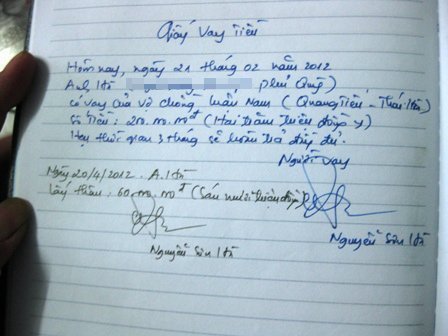 Giấy Vay Tiền
Hôm nay, ngày 21 tháng 02 năm 2012
A. Hà phú Quý)
có vay của vợ chồng Tuấn Nam (Quang Tiến - Thái Hòa)
Số tiền: 200.000.000đ (Hai trăm triệu đồng)
Hẹn thời gian 3 tháng sẽ hoàn trả đầy đủ.
Người vay
Ngày 20/4/2012. A. Hà
lấy thêm: 60.000.000đ (Sáu mươi triệu đồng)
Nguyễn Sơn Hà
Nguyễn Sơn Hà